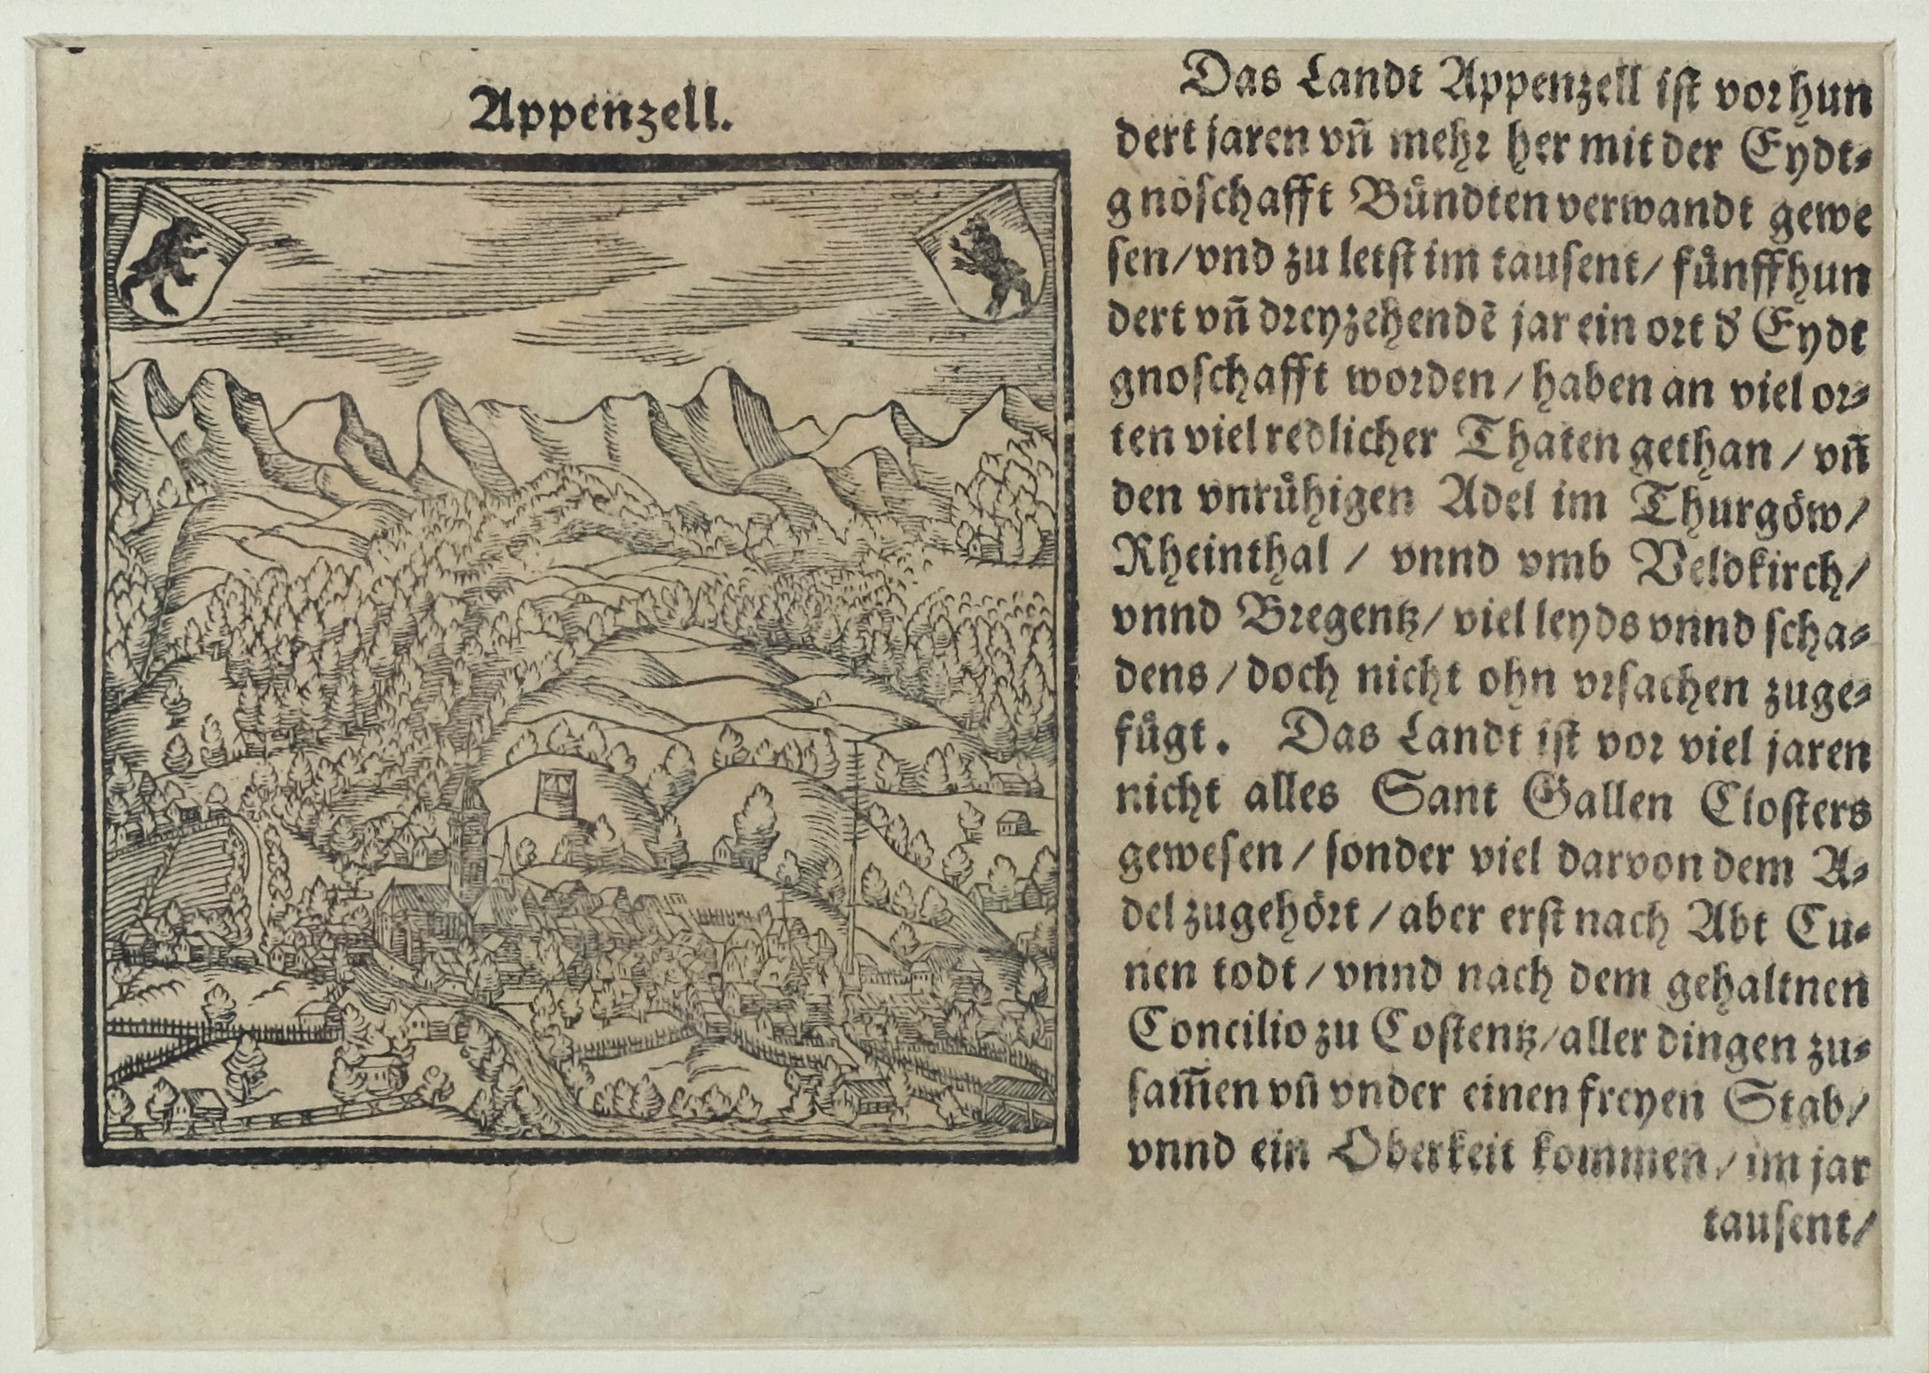 Appenzell.
Das Landt Appenzell iſt vor hun
dert jaren vñ mehr her mit der Eydt⸗
gnoſchafft Bündten verwandt gewe
ſen/vnd zu letſt im tauſent/ fünffhun
dert vñ dreyzehendẽ jar ein ort d' Eydt
gnoſchafft worden/haben an viel or⸗
ten viel redlicher Thaten gethan/vñ
den vnrůhigen Adel im Thurgöw/
Rheinthal/ vnnd vmb Veldkirch/
vnnd Bregentz/viel leyds vnnd ſcha⸗
dens/doch nicht ohn vrſachen zuge⸗
fügt. Das Landt iſt vor viel jaren
nicht alles Sant Gallen Cloſters
geweſen/ſonder viel darvon dem A⸗
del zugehört/aber erſt nach Abt Cu⸗
nen todt/vnnd nach dem gehaltnen
Concilio zu Coſtentz/aller dingen zu⸗
ſam̃en vñ vnder einen freyen Stab/
vnnd ein Oberkeit kommen/im jar
tauſent/